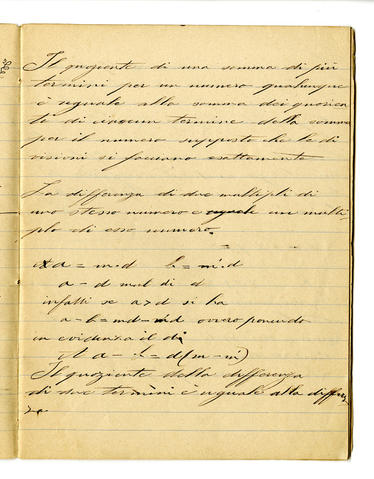 Il quoziente di una somma di più
termini per un numero qualunque
è uguale alla somma dei quozien
ti di ciascun termine della somma
per il numero supposto che le di
visioni si facciano esattamente
La differenza di due multipli di
uno stesso numero è uguale un multi
plo di esso numero.
=
a = m·d b = m'·d
a - d mult di d
infatti se a > d si ha
a - b = md - m'd ovvero ponendo
in evidenza il d
a - b = d(m - m')
Il quoziente della differenza
di due termini è uguale alla differ